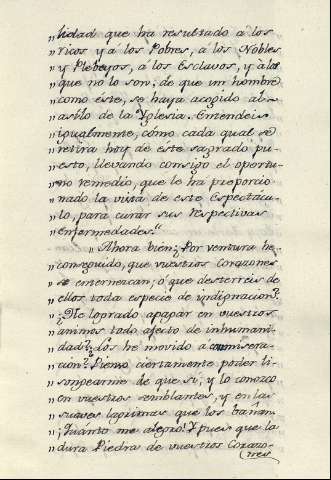 „lidad que ha resultado à los
„ricos y à los Pobres, à los Nobles
„y Plebeyos, à los Esclavos, y à los
„que no lo son: de que un hombre
„como éste, se haya acogido al
„asilo de la Yglesia. Entendeis
„igualmente, cómo cada qual se
„retira hoy de este sagrado pu-
„esto, llevando consigo el oportu-
„no remedio, que le há proporcio-
„nado la vista de este Espectacu-
„lo, para curar sus respectivas
„enfermedades."
„Ahora bien: ¿Por ventura he
„conseguido, que vuestros Corazones
„se enternezcan, ò que desterreis de
„ellos toda especie de indignacion?
„¿He logrado apagar en vuestros
„animos todo afecto de inhumani-
„dad? ¿Los hé movido à comisera-
„cion? Pienso ciertamente poder li-
„songearme de que si; y lo conozco
„en vuestros semblantes, y en las
„suaves lagrimas que los bañan.
„¡Quánto me alegro! Y pues que la
„dura Piedra de vuestros Corazo-
nes